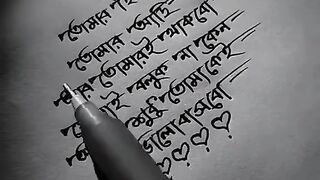 তোমার
তোমার আছি
আর তোমারই থাকবো
যাই বলুক না কেন
শুধু তোমাকেই
ভালোবাসবো